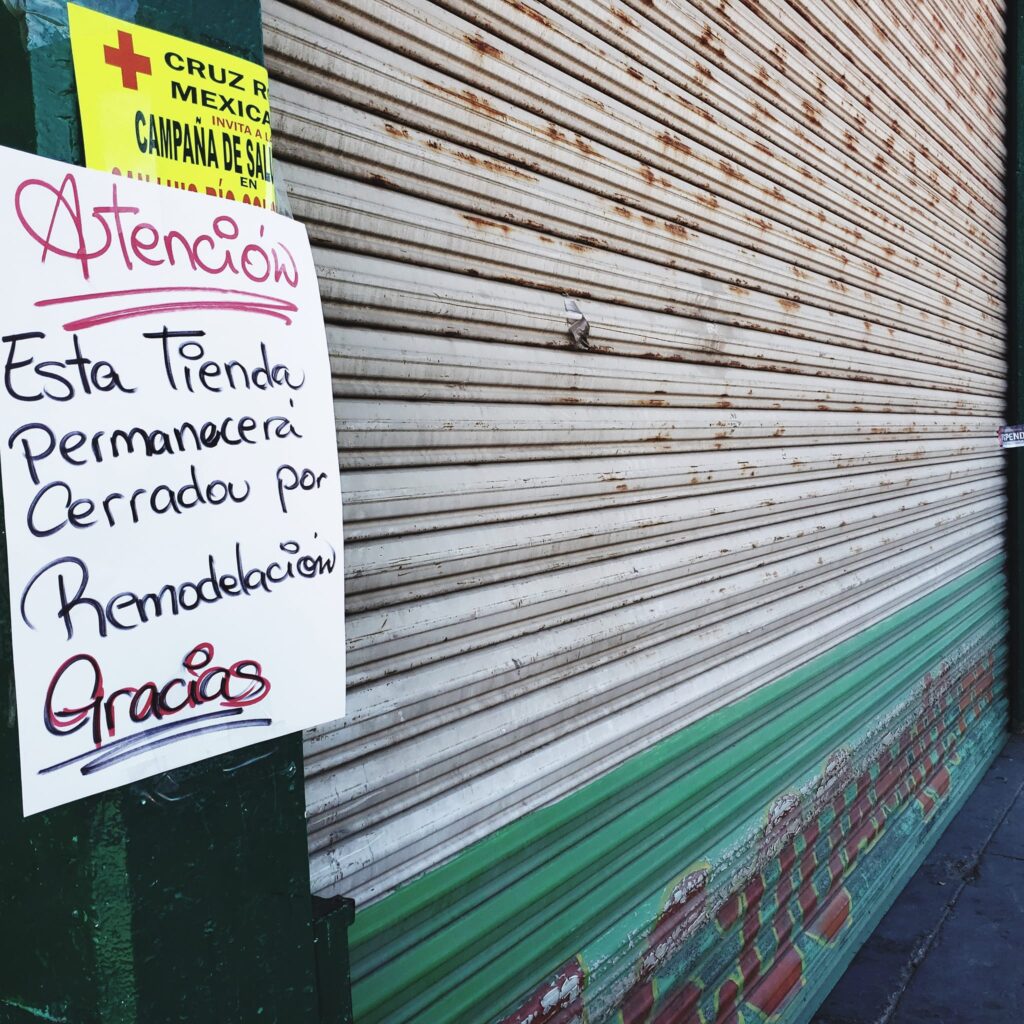 CRUZ R
MEXICA
INVITA A L
CAMPAÑA DE SAL
EN
SAN LUIS RÍO COL
Atención
Esta Tienda
permanecerá
Cerradou por
Remodelación
Gracias